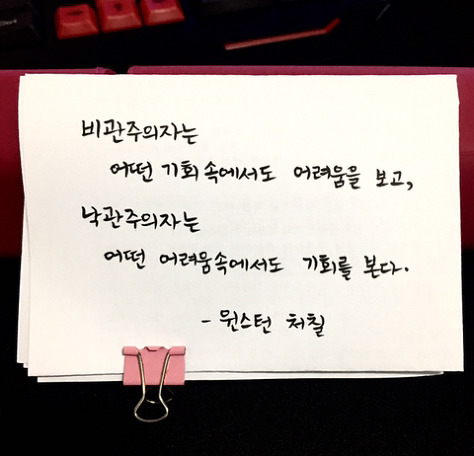 비관주의자는
어떤 기회 속에서도 어려움을 보고,
낙관주의자는
어떤 어려움속에서도 기회를 본다.
- 윈스턴 처칠